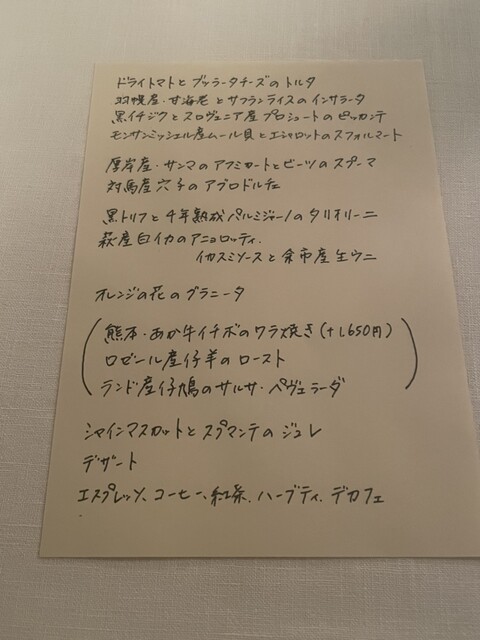 ドライトマトとブッラータチーズのトルタ
羽幌産・甘海老とサフランライスのインサラータ
黒イチジクとスロヴェニア産プロシュートのピッカンテ
モンサンミッシェル産ムール貝とエシャロットのスフォルマート
厚岸産・サンマのアフミカートとビーツのスプーマ
対馬産穴子のアグロドルチェ
黒トリフと千年熟成パルミジャーノのタリオリーニ
萩産白イカのアニョロッティ.
イカスミソースと余市産生ウニ
オレンジの花のグラニータ
熊本・あか牛イチボのワラ焼き(+1,650円)
ロゼール産仔羊のロースト
ランド産仔鳩のサルサ・ペヴェラーダ
シャインマスカットとスプマンテのジュレ
デザート
エスプレッソ、コーヒー、紅茶、ハーブティ、デカフェ